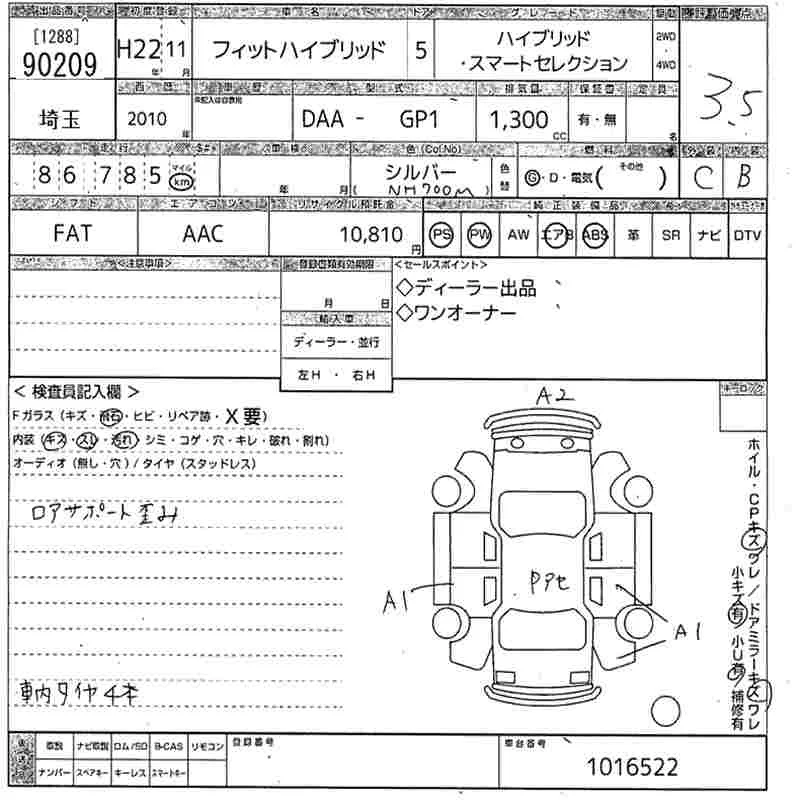 出品番号 初度登録 車名 ドア グレード 駆動 評価点
[1288] 90209 H22年 11月 フィットハイブリッド 5 ハイブリッド ・スマートセレクション 2WD・4WD 3.5
西暦 車歴 型式 排気量 保証書 定員
※記入は自家用
埼玉 2010年 DAA - GP1 1,300cc 有・無 名
走行 S#- 車検 色(Co.No) 燃料 外装 内装
86,785 マイル km 年 月 シルバー (NH700M) 色替 G・D・電気(その他) C B
シフト エアコン リサイクル預託金 純正装備品
FAT AAC 10,810円 PS PW AW エアB ABS 革 SR ナビ DTV
<注意事項> 登録書類有効期限 <セールスポイント>
月 日 ◇ディーラー出品
輸入車 ◇ワンオーナー
ディーラー・並行
左H ・ 右H
< 検査員記入欄 > キーロック
Fガラス (キズ・飛石・ヒビ・リペア跡・X要)
内装 (キズ・スレ・汚れ・シミ・コゲ・穴・キレ・破れ・割れ)
オーディオ (無し・穴) / タイヤ (スタッドレス)
ロアサポート歪み
車内タイヤ4本
A2
Pアセ
A1
A1
ホイル・CPキズワレ / ドアミラーキズワレ
小キズ有 小U有 補修有
後送品 取説 ナビ取説 ロム/SD B-CAS リモコン 登録番号 車台番号
ナンバー スペアキー キーレス スマートキー 1016522